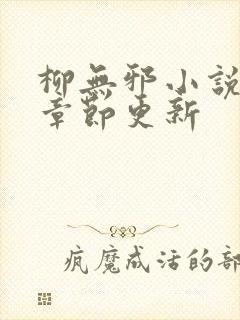 柳無邪小說
章節更新
疯魔成活的部